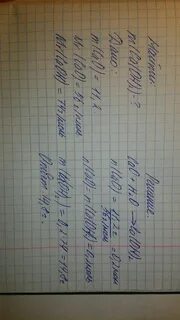 Найти:
m(Ca(OH)2) - ?
Дано:
m(CaO) = 11,2
Mr(CaO) = 56 г/моль
Mr(Ca(OH)2) = 74 г/моль
Решение.
CaO + H2O → Ca(OH)2
n(CaO) = 11,2г / 56г/моль = 0,2 моль
n(CaO) = n(Ca(OH)2) = 0,2 моль
m(Ca(OH)2) = 0,2 · 74 = 14,8г
Ответ: 14,8г.